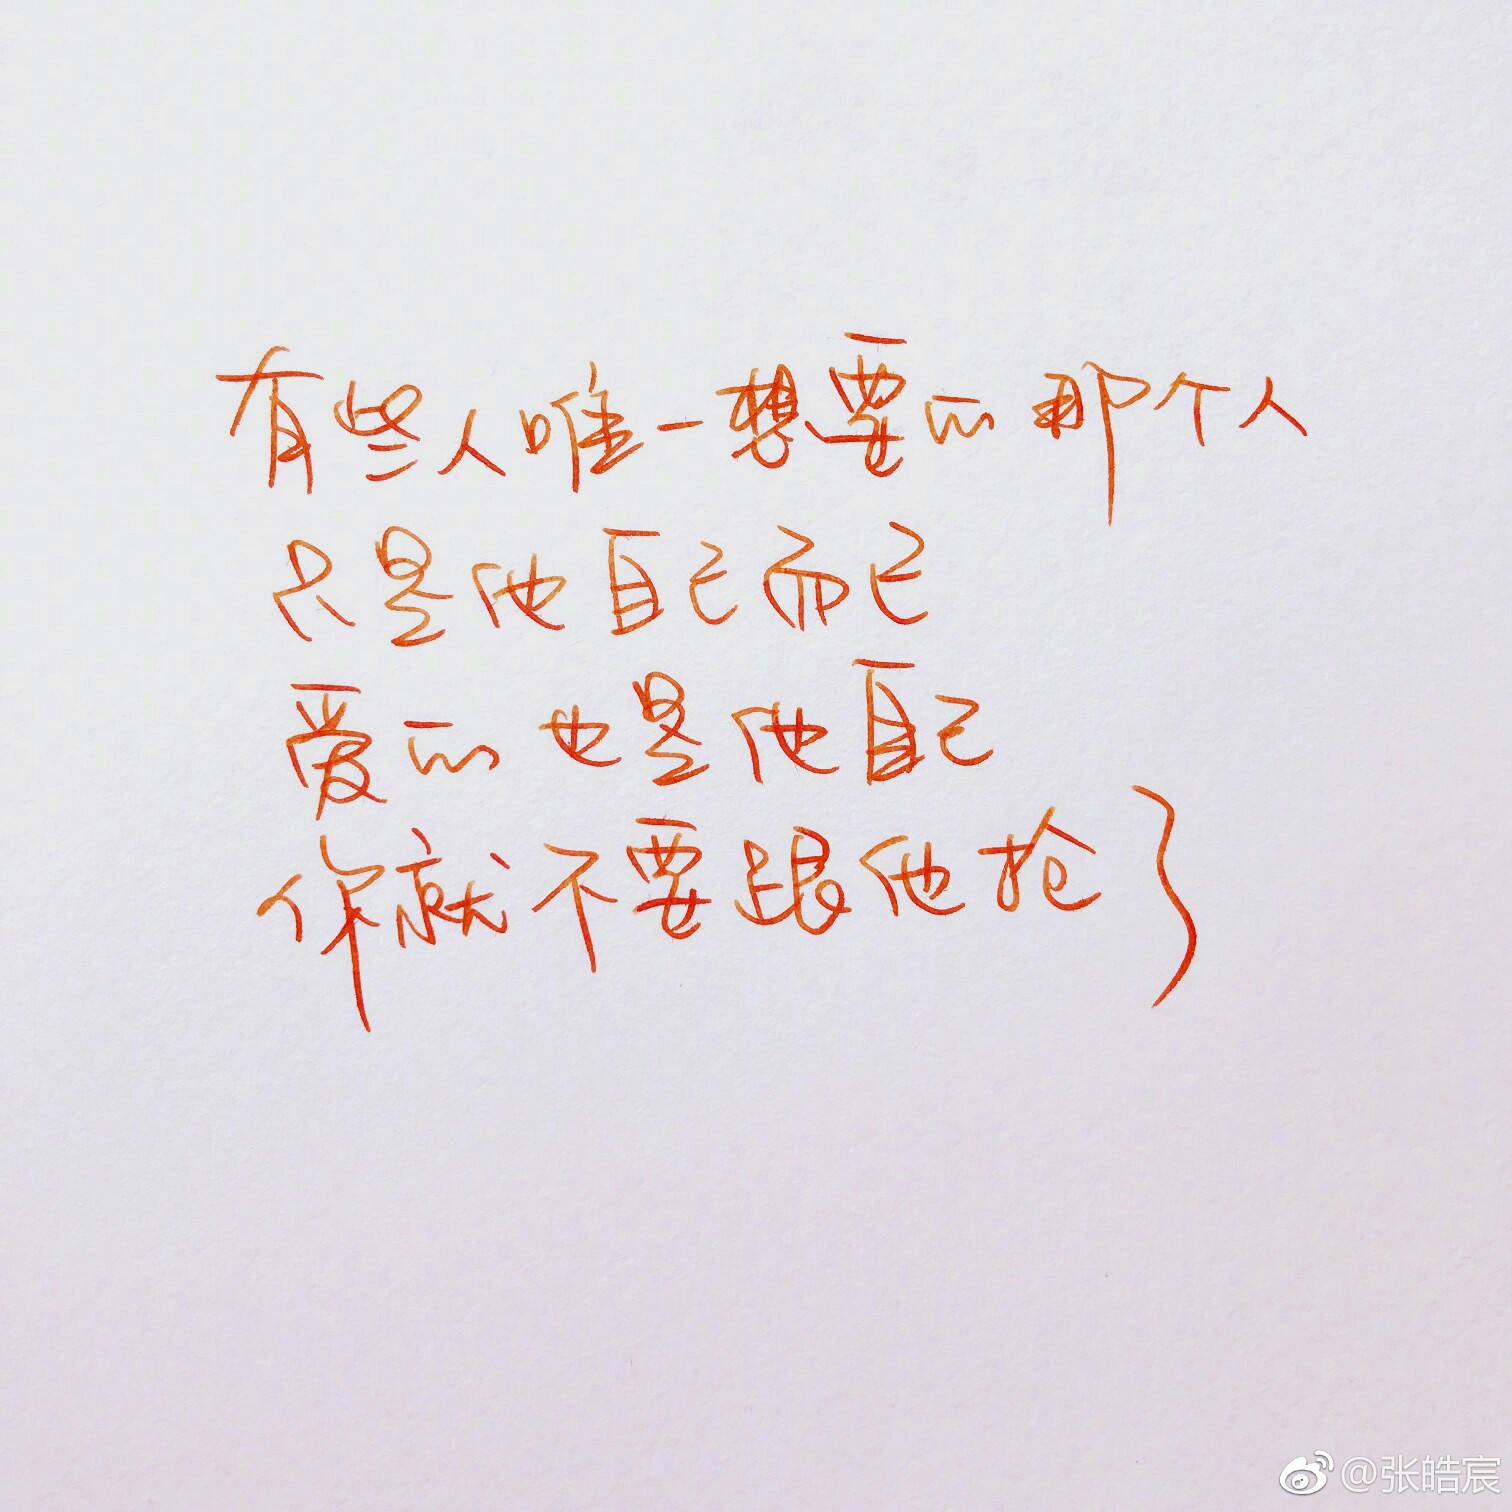 有些人唯一想要的那个人
只是他自己而已
爱的也是他自己
你就不要跟他抢了
@张皓宸